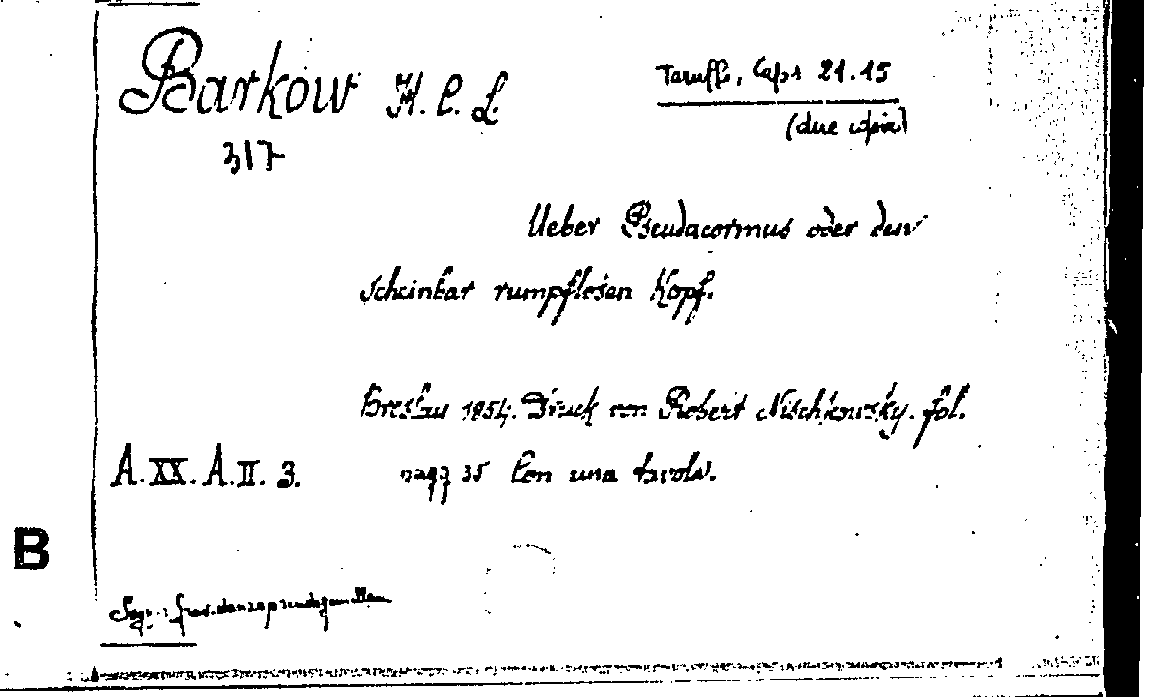 Barkow H. C. L.
Taruffi, Caps 21.15
(due copie)
317
Ueber Pseudacormus oder den
scheinbar rumpflosen Kopf.
Breslau 1854. Druck von Robert Nischkowsky. fol.
A. XX. A. II. 3.
pagg 35 Con una tavola.
B